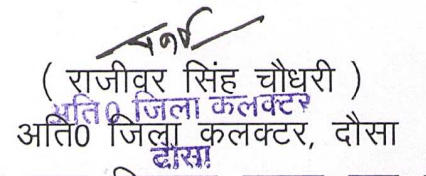 ( राजीवर सिंह चौधरी )
अति0 जिला कलक्टर
अति0 जिला कलक्टर, दौसा
दौसा